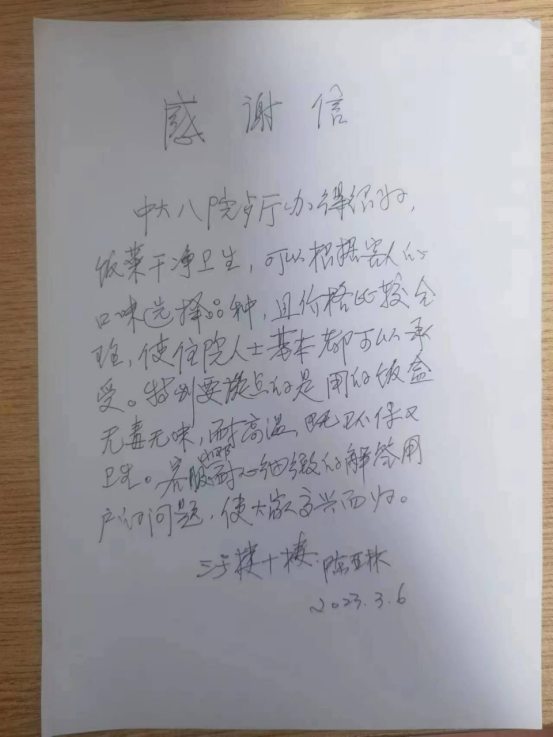 感谢信
中大八院歺厅办得很好，
饭菜干净卫生，可以根据客人的
口味选择品种，且价格比较合
理，使住院人士基本都可以承
受。特别要提点的是用的饭盒
无毒无味，耐高温，既环保又
卫生。客服耐心细致的解答用
户的问题，使大家高兴而归。
三号楼十楼 陈亚林
2023.3.6